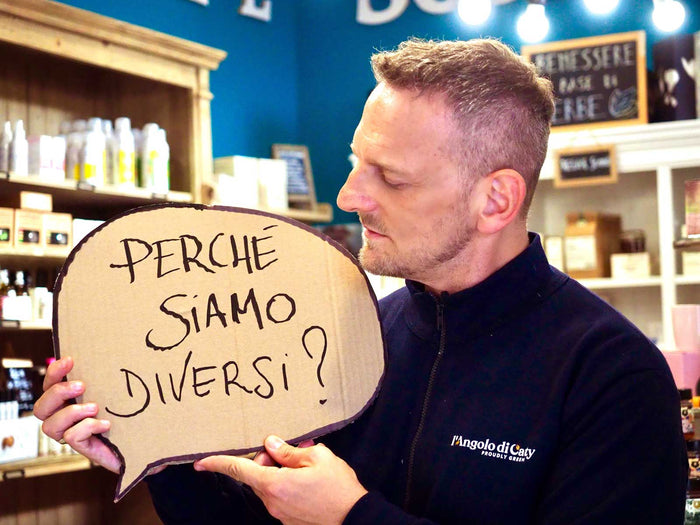 PERCHÉ
SIAMO
DIVERSI?
BENESSERE
BASE DI
ERBE
l'Angolo di Caty
PROUDLY GREEN